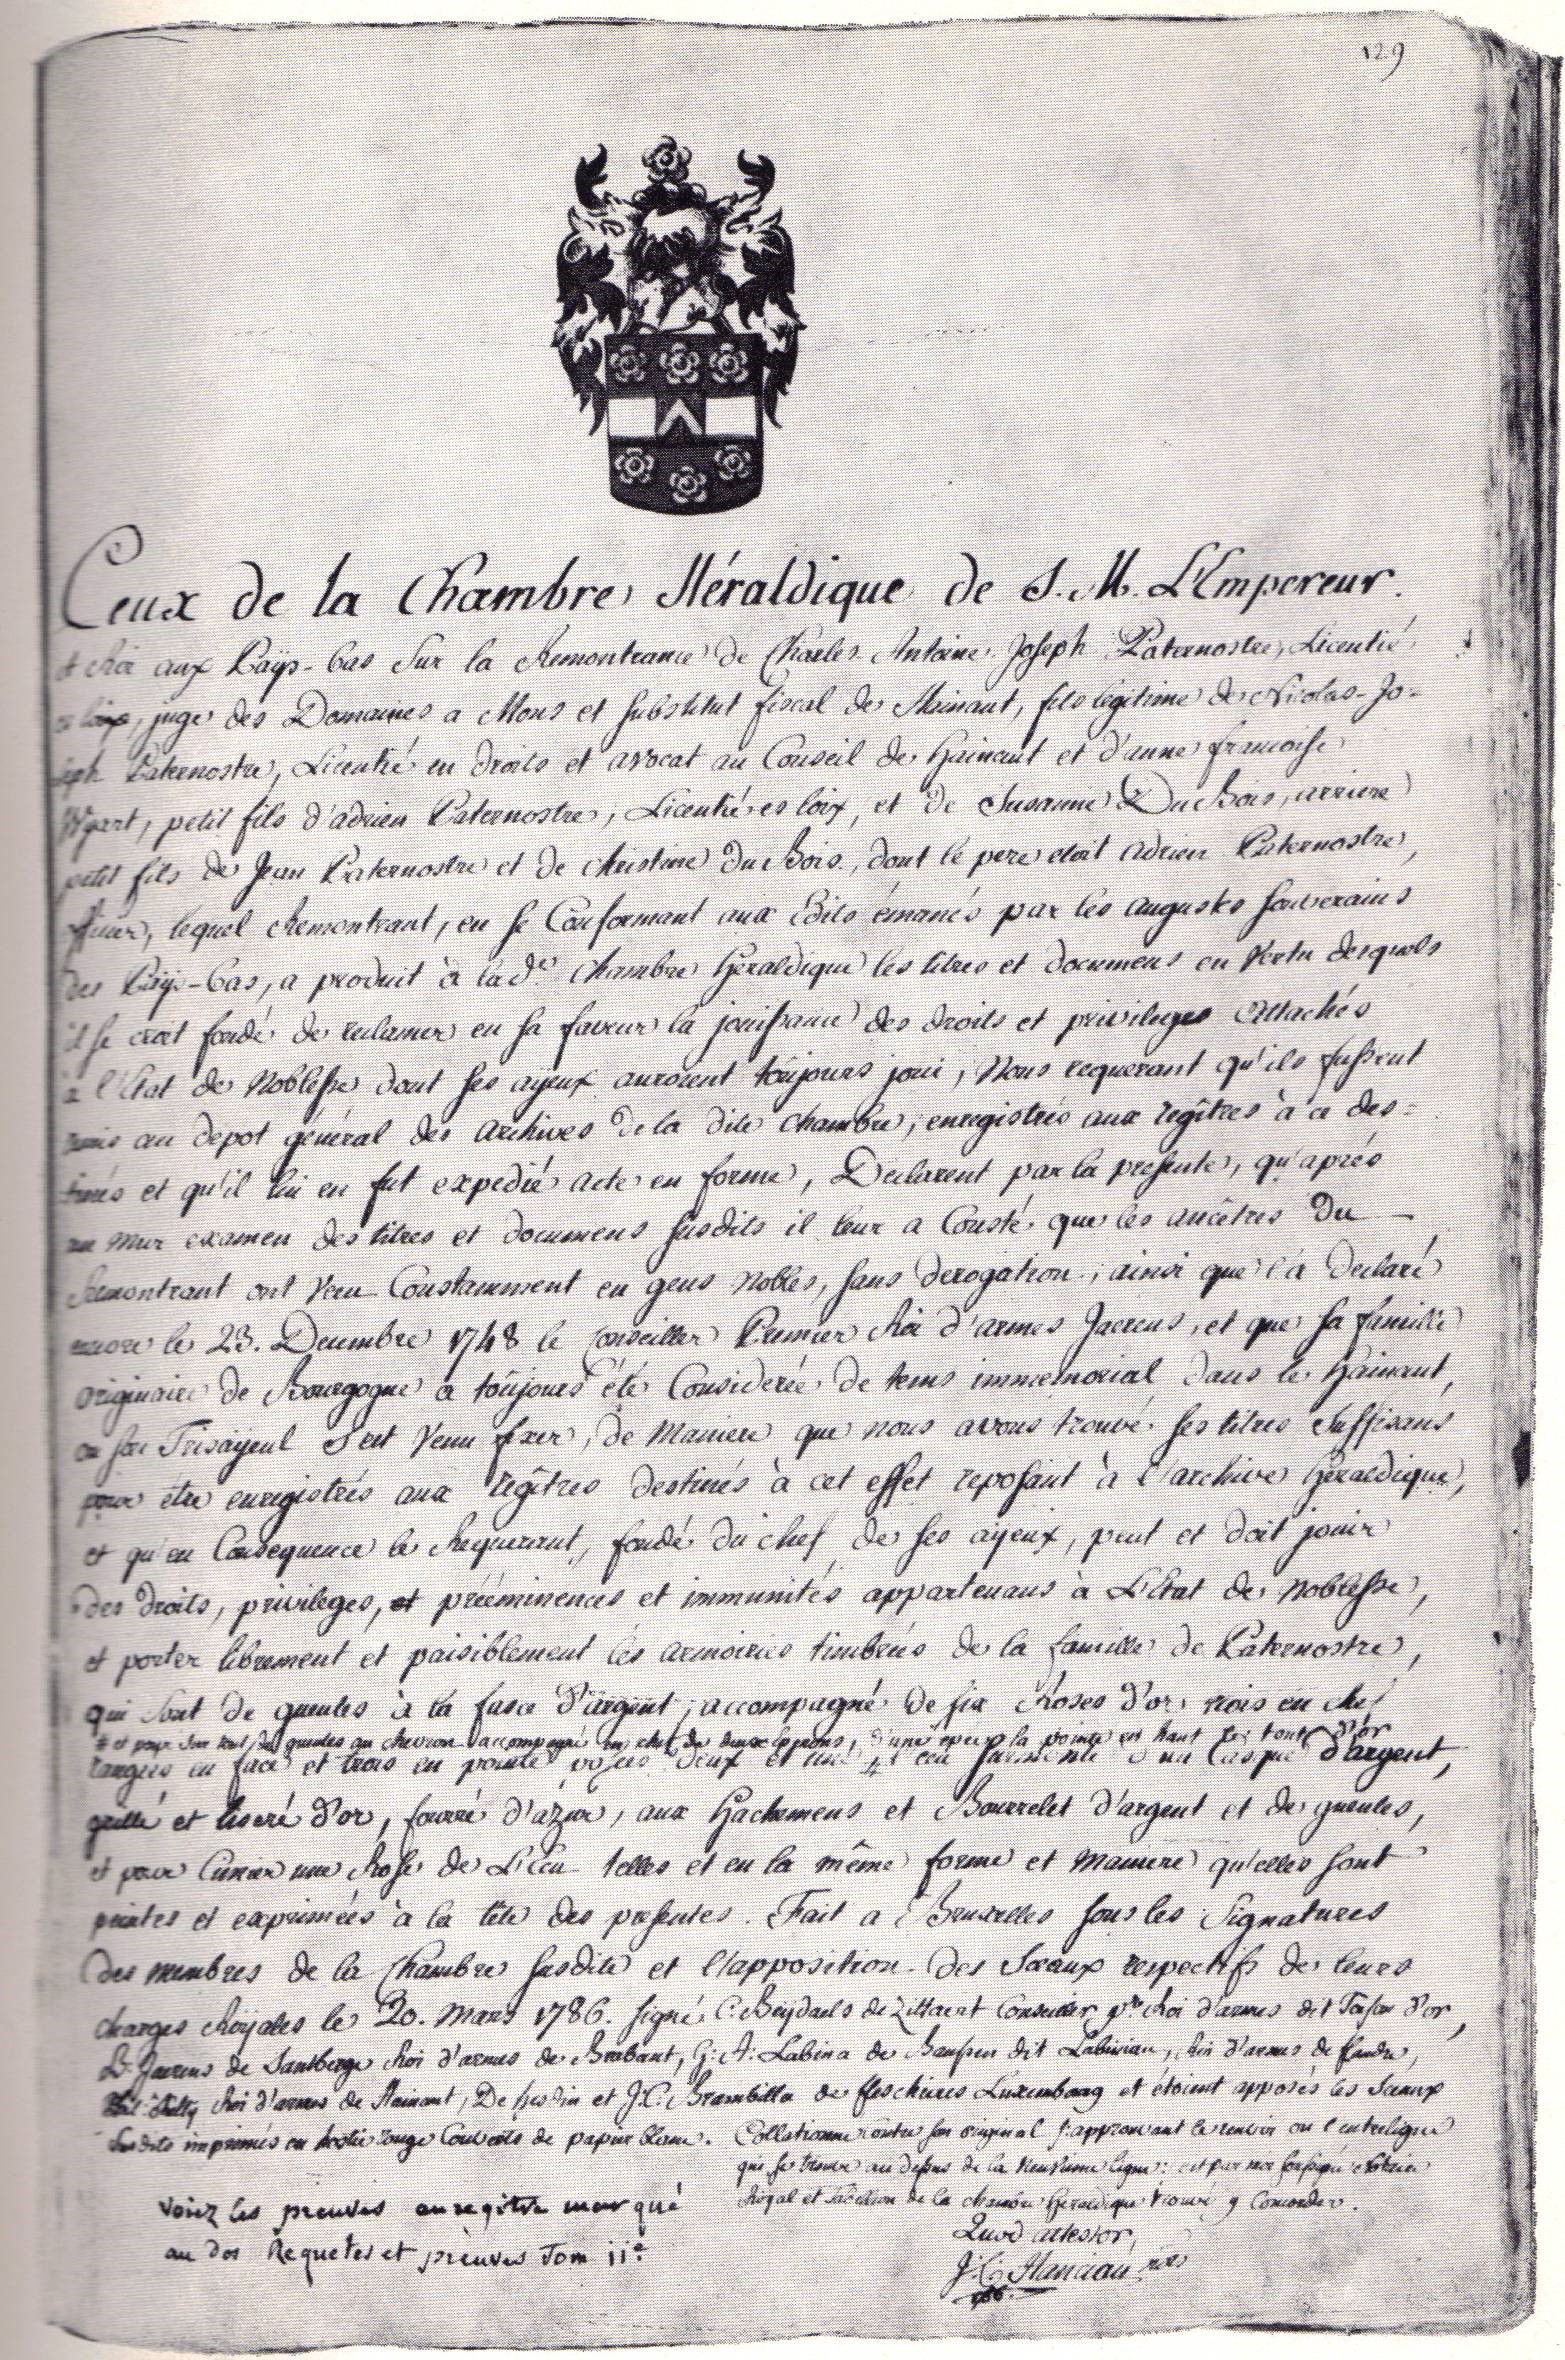 129
Ceux de la Chambre Héraldique de S. M. L'Empereur.
et Roi aux Païs-bas sur la Remontrance de Charles Antoine Joseph Paternostre, Licentié
es loix, juge des Domaines a Mons et substitut fiscal de Hainaut, fils légitime de Nicolas-Jo-
seph Paternostre, Licentié en droits et avocat au Conseil de Hainaut et d'anne francoise
Wyart, petit fils d'adrien Paternostre, Licentié es loix, et de Susanne Du Bois, arriere
petit fils de Jean Paternostre et de christine du Bois, dont le pere etoit adrien Paternostre,
lequel Remontrant, en se Conformant aux Edits émanés par les augustes souverains
des Païs-Bas, a produit à la de. chambre héraldique les titres et documens en vertu desquels
il se croit fondé de reclamer en sa faveur la jouissance des droits et privileges attachés
à l'Etat de Noblesse dont ses ayeux auroient toûjours joui, Nous requerant qu'ils fussent
remis au depot général des archives de la dite chambre, enregistrés aux regîtres à ce des=
tinés et qu'il lui en fut expedié acte en forme, Declarent par la presente, qu'aprés
un mur examen des titres et documens susdits il leur a Consté que les ancêtres du
Remontrant ont vecu Constamment en gens nobles, sans derogation, ainsi que l'a declaré
encore le 23. Decembre 1748 le Conseiller Premier Roi d'armes Jaerens, et que sa famille
originaire de Bourgogne a toûjours été Considerée de tems immemorial dans le hainaut,
ou son Trisaïyeul s'est venu fixer, de maniere que nous avons trouvé ses titres suffisans
pour être enregistrés aux regîtres destinés à cet effet reposant à l'archive héraldique,
et qu'en Consequence le Requerant, fondé du chef de ses aïyeux, peut et doit jouir
des droits, privileges, et prééminences et immunités appartenans à L'Etat de noblesse,
et porter librement et paisiblement les armoiries timbrées de la famille de Paternostre,
qui sont de gueules à la fasce d'argent, accompagné de six Roses d'or, trois en chef
et pour sur tout de gueules au chevron accompagné en chef de deux éperons, d'une épée la pointe en haut le tout d'or
rangées en face et trois en pointe posées deux et une, l'ecu surmonté d'un Casque d'argent,
grillé et liseré d'or, fourré d'azur, aux hachemens et Bourrelet d'argent et de gueules,
et pour Cimier une Rose de L'écu telles et en la même forme et maniere qu'elles sont
peintes et exprimées à la tête des presentes. Fait a Bruxelles sous les Signatures
des membres de la Chambre susdite et l'apposition des Sceaux respectifs de leurs
charges Roÿales le 20. mars 1786. signé C. Beÿdaels de Zittaert Conseiller pr. Roi d'armes dit Toison d'or,
D. Jaerens de Santberge Roi d'armes de Brabant, G: A: Labina de Baussen dit Labiniau, Roi d'armes de flandre,
Roi d'armes de Hainaut, De hesdin et J. C. Brambilla de Luxembourg et étoient apposés les Sceaux
susdits imprimés en hostie rouge Couverts de papier blanc. Collationné contre son original j'approuvant le renvoi ou l'entreligne
que se trouve au dessus de la neuvieme ligne: est par moi soussigné Notaire
Roïal et tabellion de la chambre héraldique trouvé y Concorder.
Quod attestor,
voiez les preuves au regitre marqué
au dos Requetes et preuves Tom 11e.